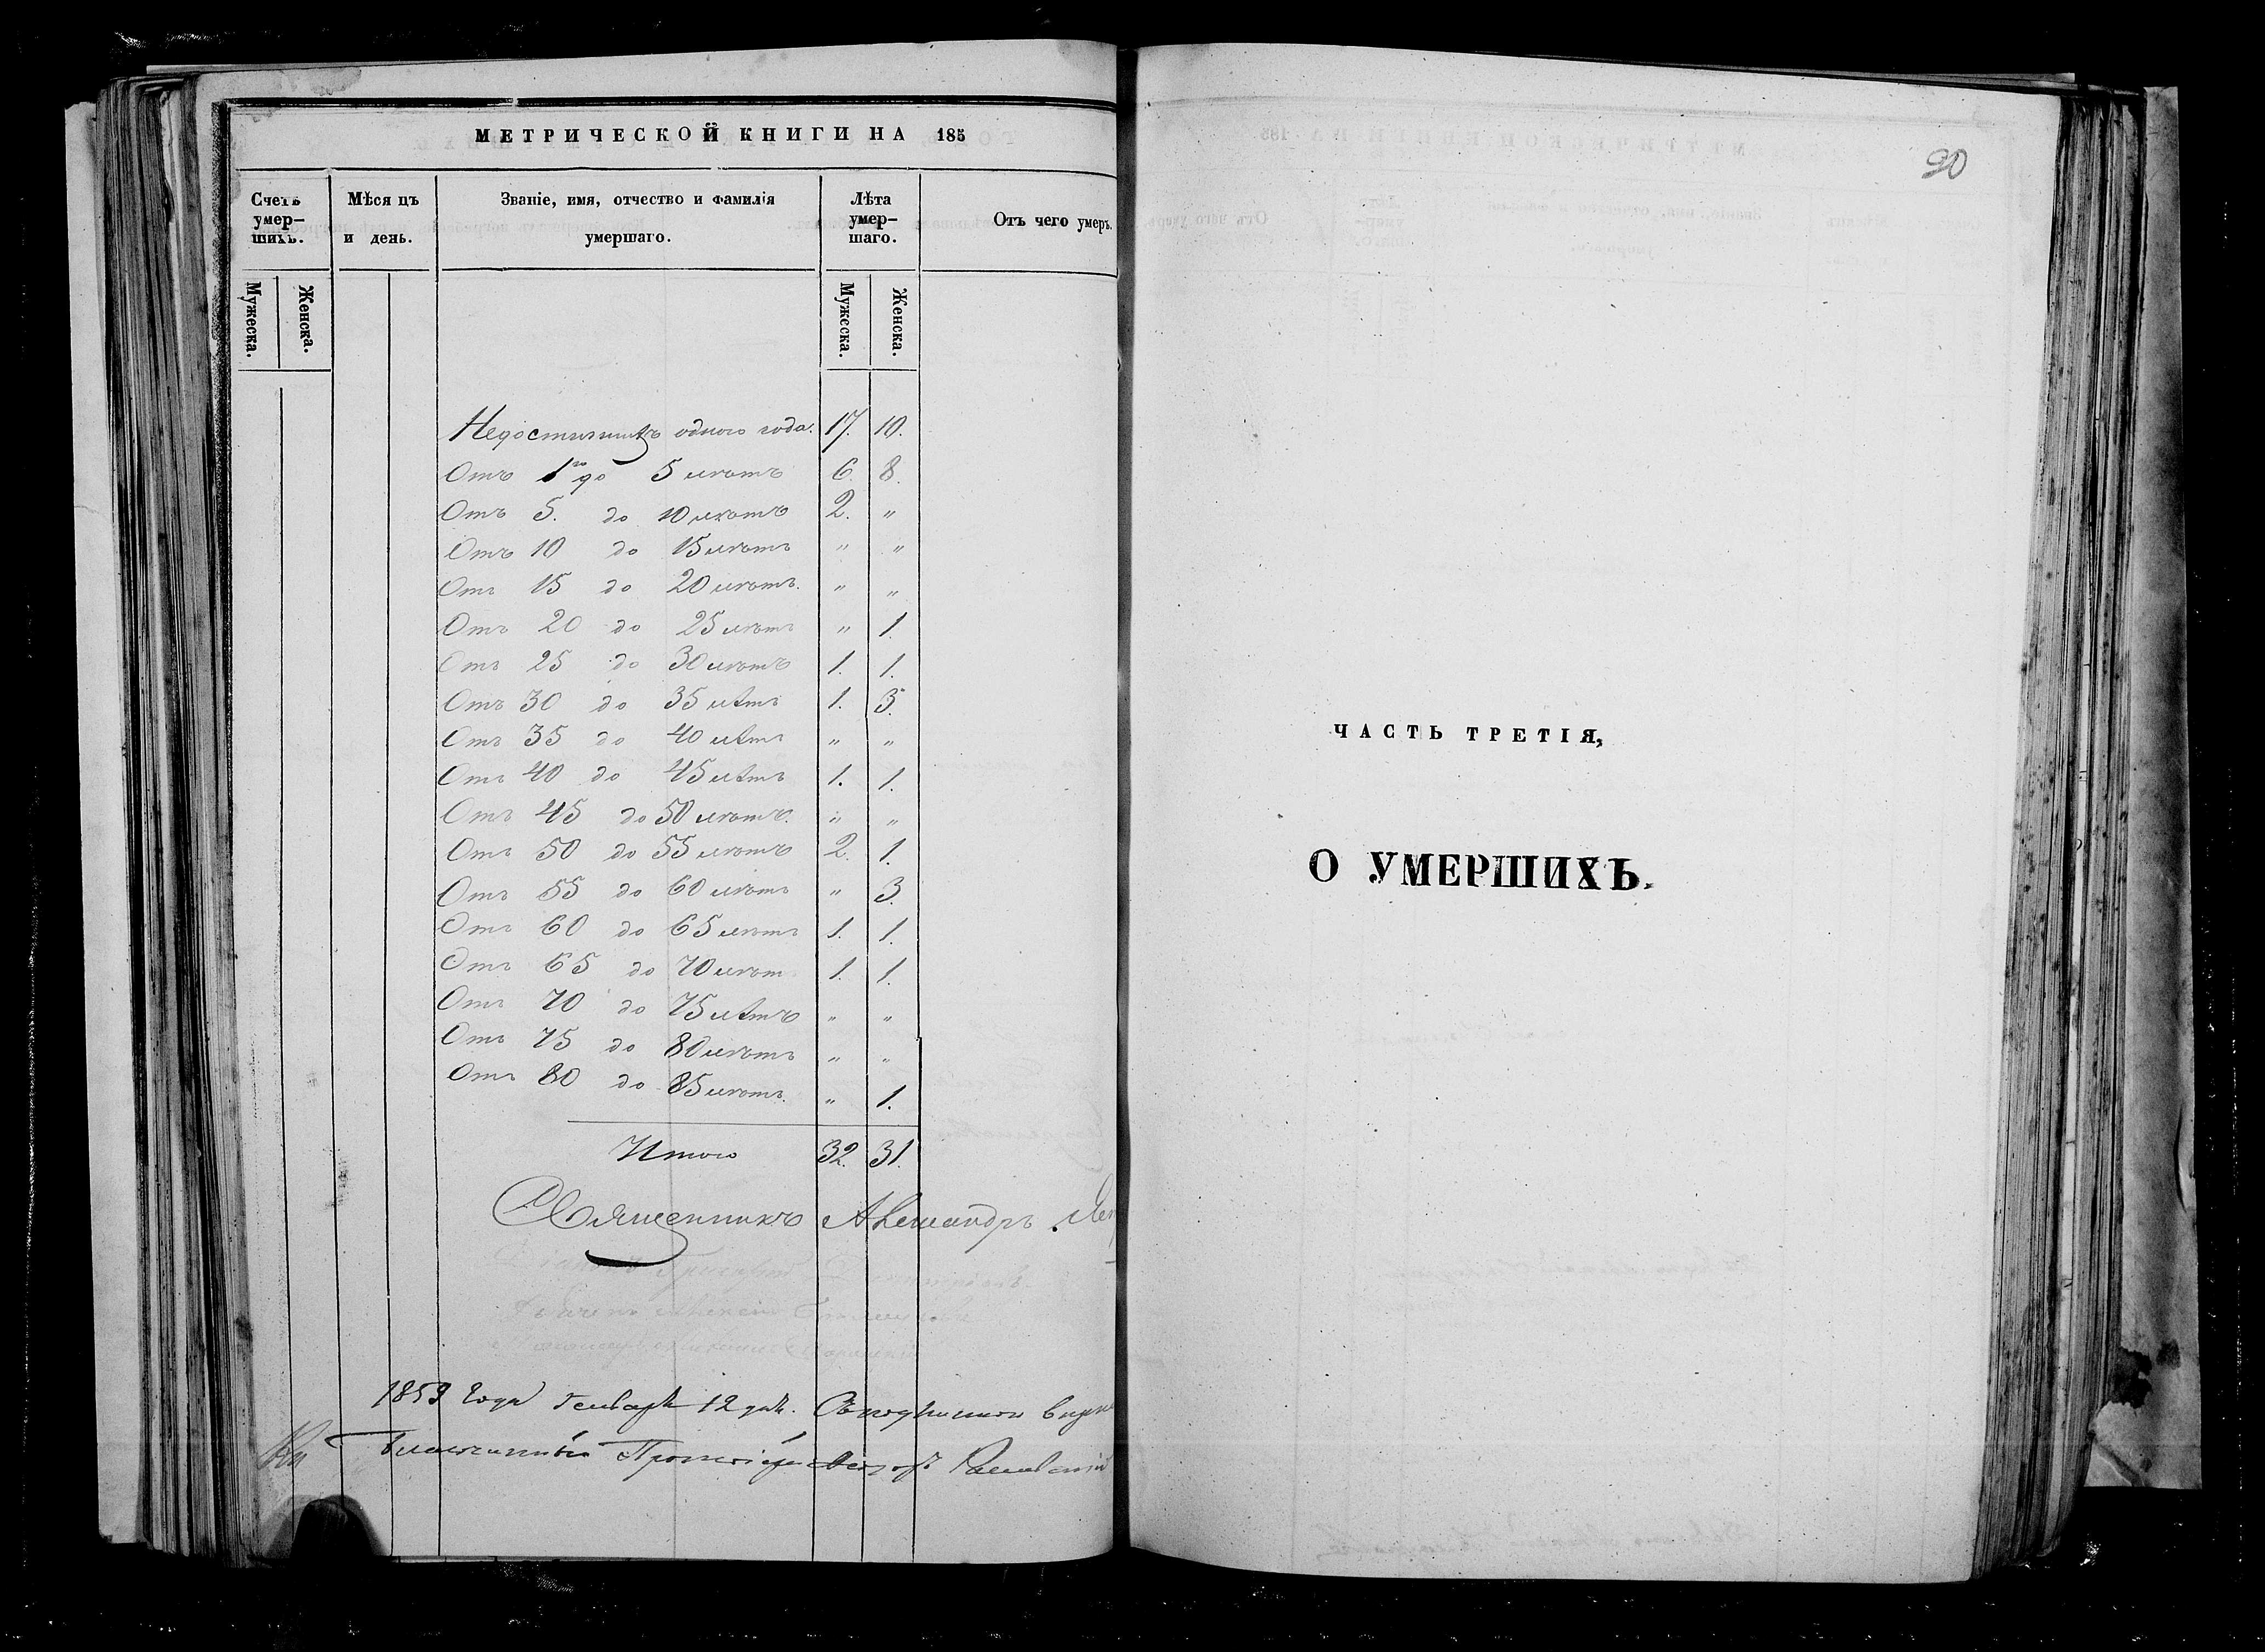 МЕТРИЧЕСКОЙ КНИГИ НА 185
Счетъ умер-шихъ.
Мѣсяцъ и день.
Званіе, имя, отчество и фамилія умершаго.
Лѣта умер-шаго.
Отъ чего умеръ.
Мужеска. Женска. Мужеска. Женска.
Недостигшихъ одного года. 17. 10.
Отъ 1го до 5 лѣтъ 6. 8.
Отъ 5. до 10 лѣтъ 2. "
Отъ 10 до 15 лѣтъ " "
Отъ 15 до 20 лѣтъ. " "
Отъ 20 до 25 лѣтъ " 1.
Отъ 25 до 30 лѣтъ 1. 1.
Отъ 30 до 35 лѣтъ 1. 3.
Отъ 35 до 40 лѣтъ " "
Отъ 40 до 45 лѣтъ 1. 1.
Отъ 45 до 50 лѣтъ. " "
Отъ 50 до 55 лѣтъ 2. 1.
Отъ 55 до 60 лѣтъ " 3.
Отъ 60 до 65 лѣтъ 1. 1.
Отъ 65 до 70 лѣтъ 1. 1.
Отъ 70 до 75 лѣтъ " "
Отъ 75 до 80 лѣтъ " "
Отъ 80 до 85 лѣтъ. " 1.
Итого 32. 31.
Священникъ Александръ
Діаконъ Григорій Димитріевъ
1859 года Генваря 12 дня.
Благочинный Протоіерей
90
ЧАСТЬ ТРЕТІЯ,
О УМЕРШИХЪ.